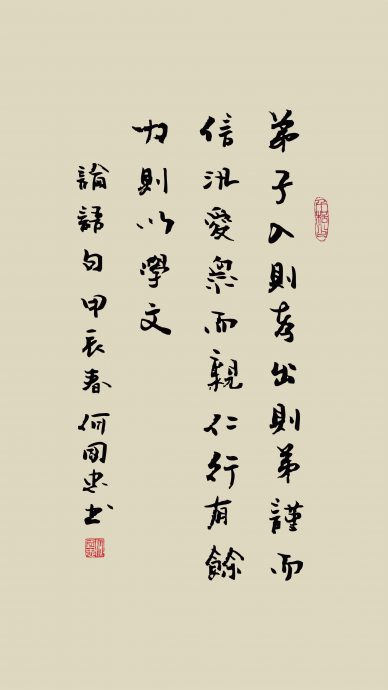 弟子入則孝出則弟謹而
信汎愛衆而親仁行有餘
力則以學文
論語句甲辰春何國忠书